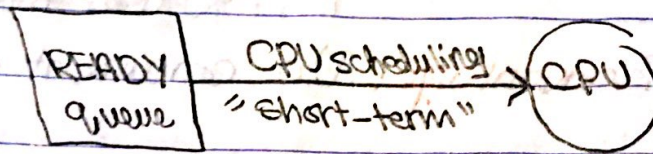 READY
queue
CPU scheduling
"short-term"
CPU